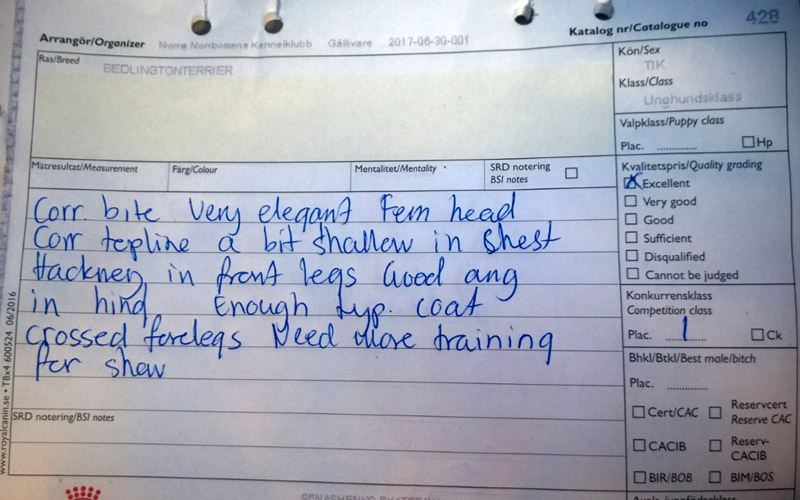 Arrangör/Organizer Norra Norrbottens Kennelklubb Gällivare 2017-06-30-001 Katalog nr/Catalogue no 428
Ras/Breed BEDLINGTONTERRIER
Kön/Sex
TIK
Klass/Class
Unghundsklass
Valpklass/Puppy class
Plac. .............. Hp
Mätresultat/Measurement Färg/Colour Mentalitet/Mentality SRD notering
BSI notes
Kvalitetspris/Quality grading
X Excellent
Very good
Good
Sufficient
Disqualified
Cannot be judged
Corr. bite Very elegant Fem head
Corr topline a bit shallow in Shest
Hackney in front legs Good ang
in hind Enough typ. coat
crossed forelegs Need more training
for show
Konkurrensklass
Competition class
Plac. 1 Ck
Bhkl/Btkl/Best male/bitch
Plac. ..............
Cert/CAC Reservcert
Reserve CAC
CACIB Reserv-
CACIB
BIR/BOB BIM/BOS
SRD notering/BSI notes
www.royalcanin.se • T8x4 600524 06/2016